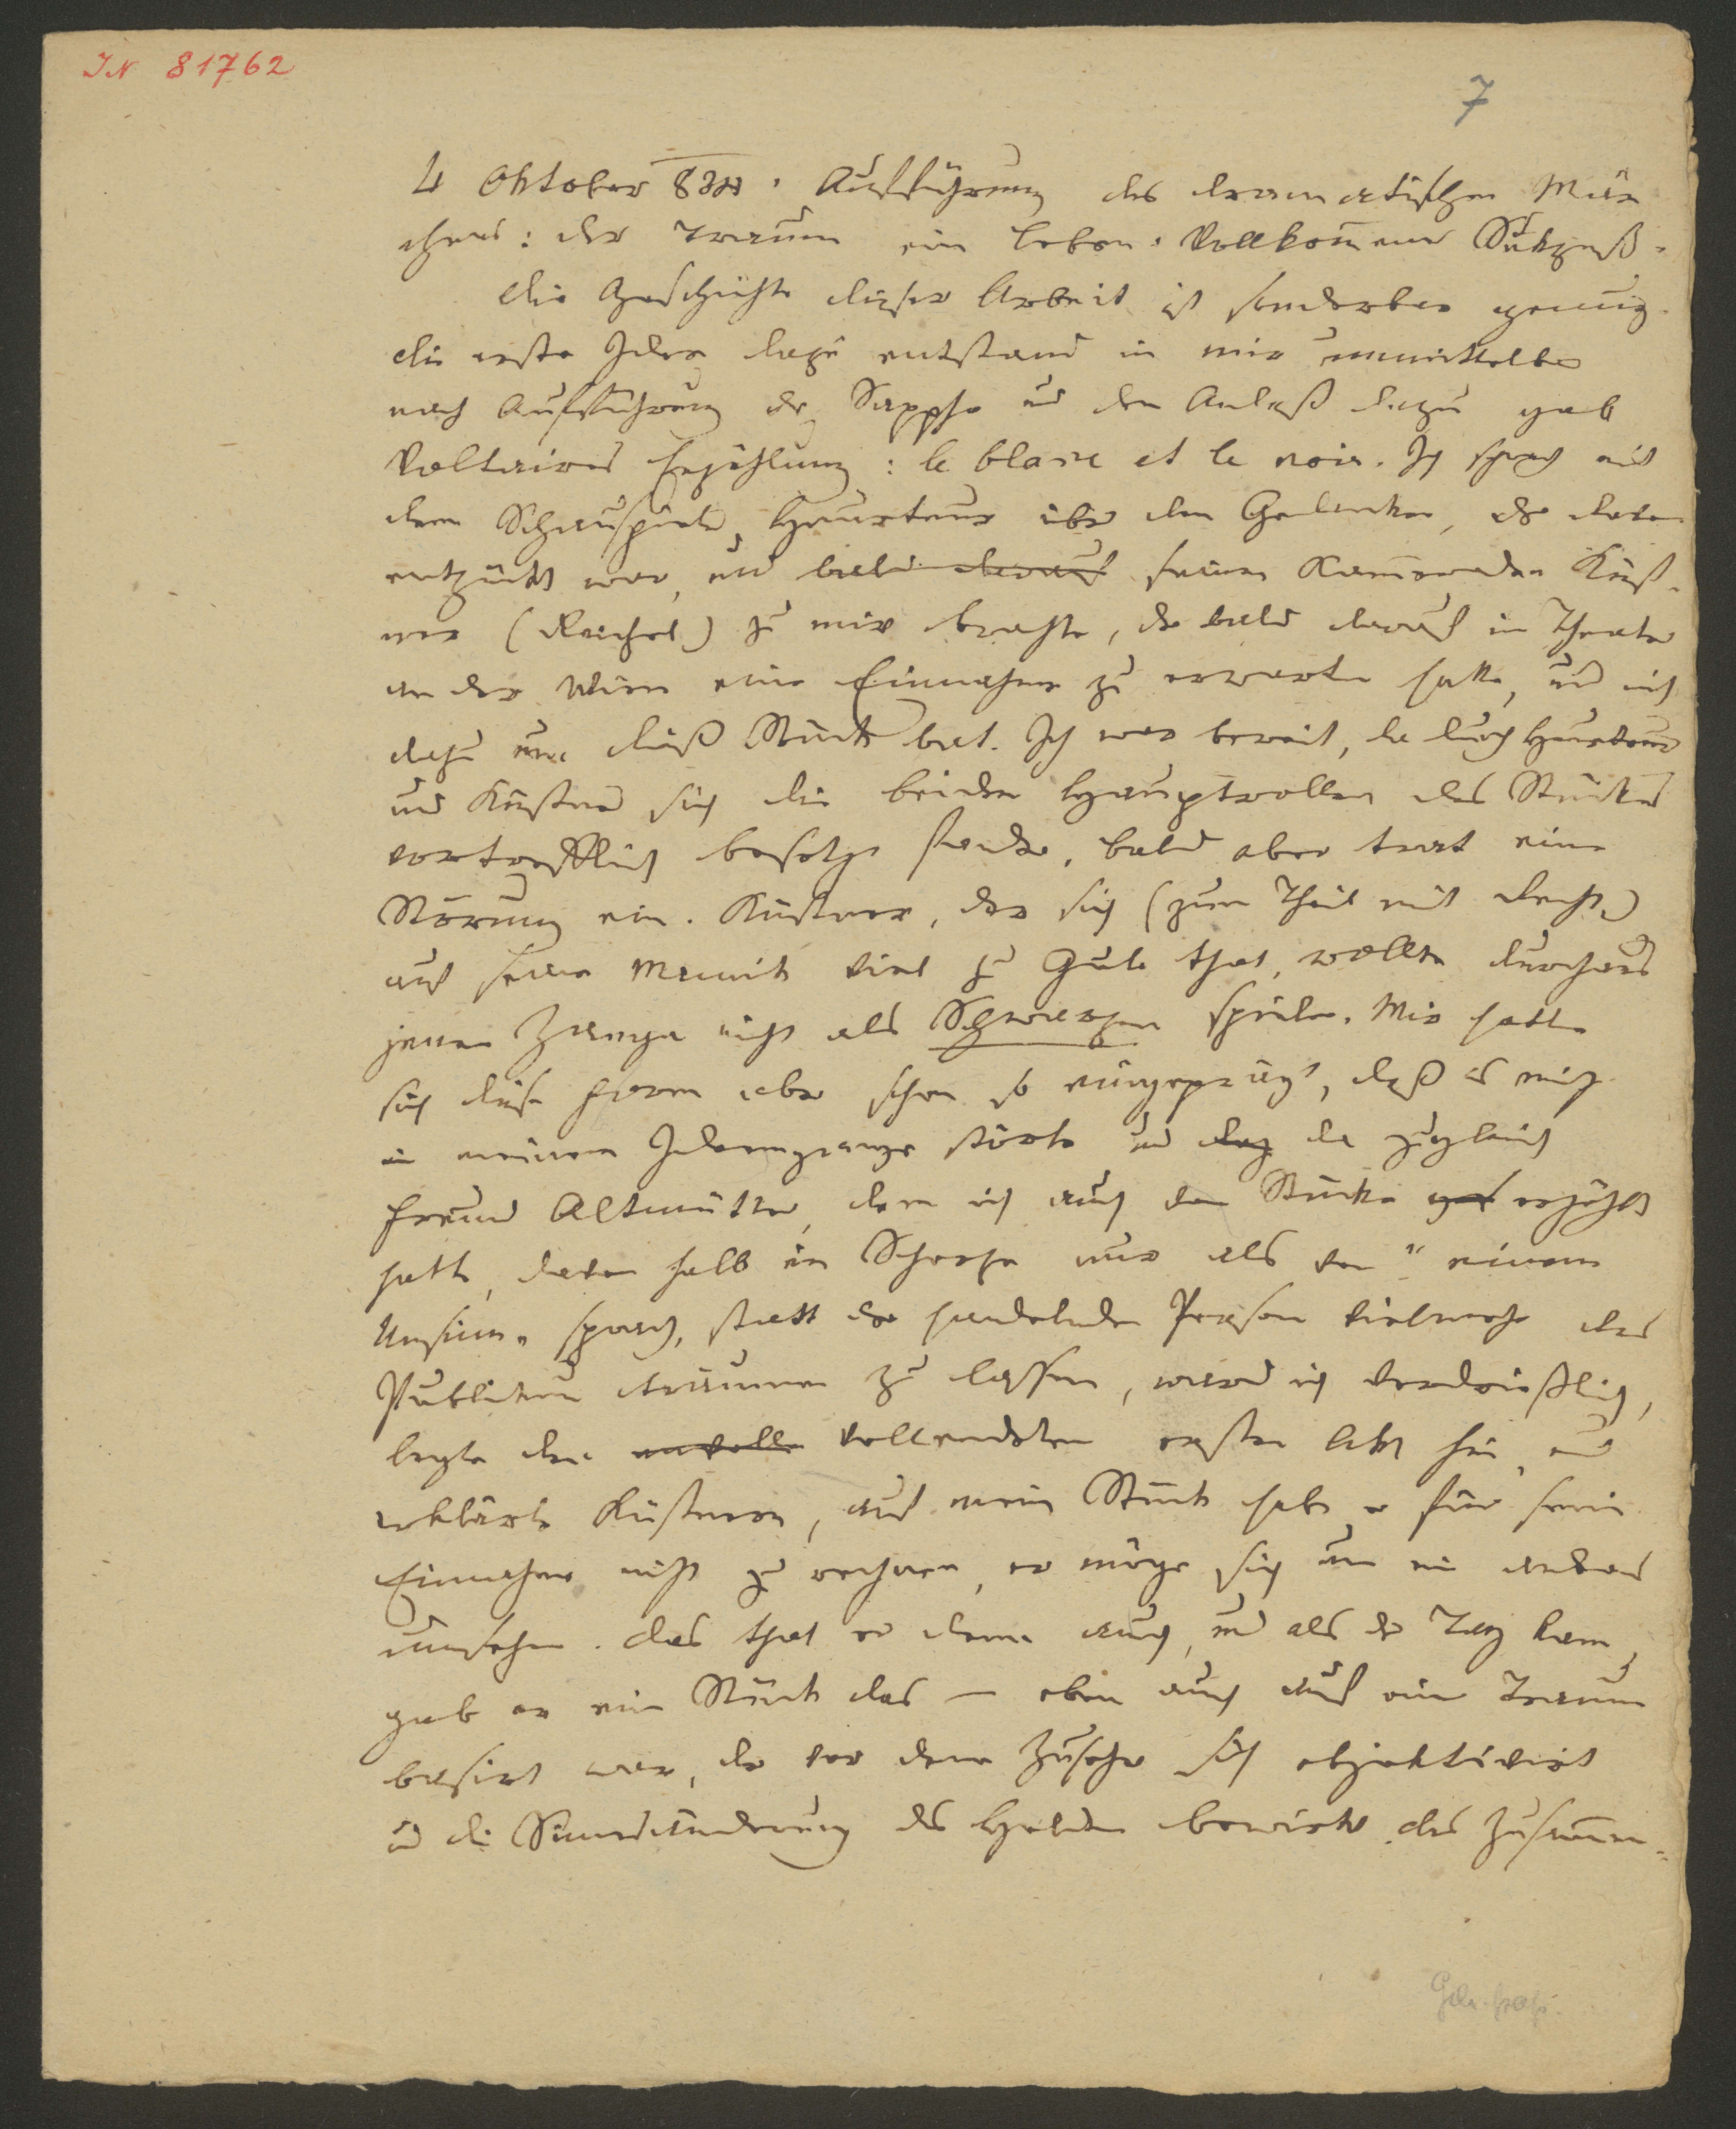 IN 81762
7
4 Oktober 834. Aufführung des dramatischen Mär
chens: der Traum ein Leben. Vollkommener Sukzeß.
Die Geschichte dieser Arbeit ist sonderbar genug.
die erste Idee dazu entstand in mir unmittelbar
nach Aufführung der Sappho und den Anlaß dazu gab
Voltaires Erzählung: le blanc et le noir. Ich sprach mit
dem Schauspieler Heurteur über den Gedanken, der davon
entzückt war, und bald darauf seinen Kameraden Küst-
ner (Reichel) zu mir brachte, der bald darauf im Theater
an der Wien eine Einnahme zu erwarten hatte, und mich
dazu um dieß Stück bat. Ich war bereit, da durch Heurteur
und Küstner sich die beiden Hauptrollen des Stückes
vortrefflich besetzt fanden, bald aber trat eine
Störung ein. Küstner, der sich (zum Theil mit Recht)
auf seine Mimik viel zu Gute that, wollte durchaus
jenen Zanga nicht als Schwarzen spielen. Mir hatte
sich diese Form aber schon so eingeprägt, daß es mich
in meinem Ideengange störte und da zugleich
Freund Altmütter, dem ich auch den Stücke erzählt
hatte, davon halb im Scherze nur als von „einem
Unsinn„ sprach, statt der handelnden Person vielmehr das
Publikum träumen zu lassen, ward ich verdrießlich,
legte den unvolle vollendeten ersten Akt hin, und
erklärte Küstnern, auf mein Stück habe er für seine
Einnahme nicht zu rechnen, er möge sich um ein anderes
umsehen. das that er denn auch, und als der Tag kam,
gab er ein Stück das — eben auch auf einen Traum
basirt war, der vor dem Zuseher sich objektivirt
und die Sinnesänderung des Helden bewirkt. das Zusammen-